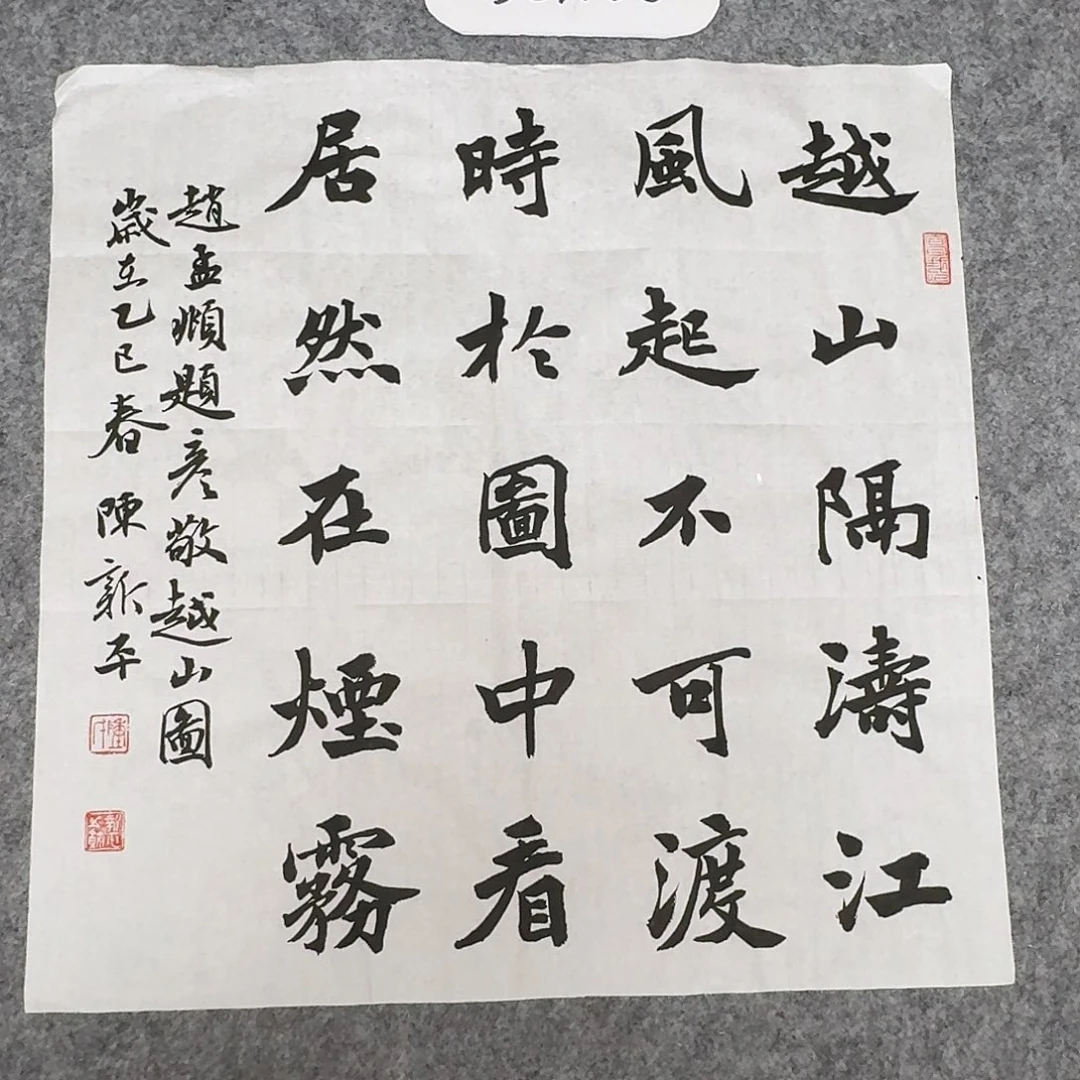 越山隔濤江
風起不可渡
時於圖中看
居然在煙霧
趙孟頫題彥敬越山圖
歲在乙巳春 陳新平